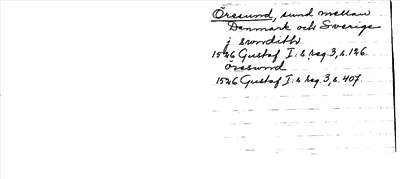 Öresund, sund mellan
Danmark och Sverige
j swndith
1526 Gustaf I:s reg. 3, s. 126.
öressund
1526 Gustaf I:s reg. 3, s. 407.